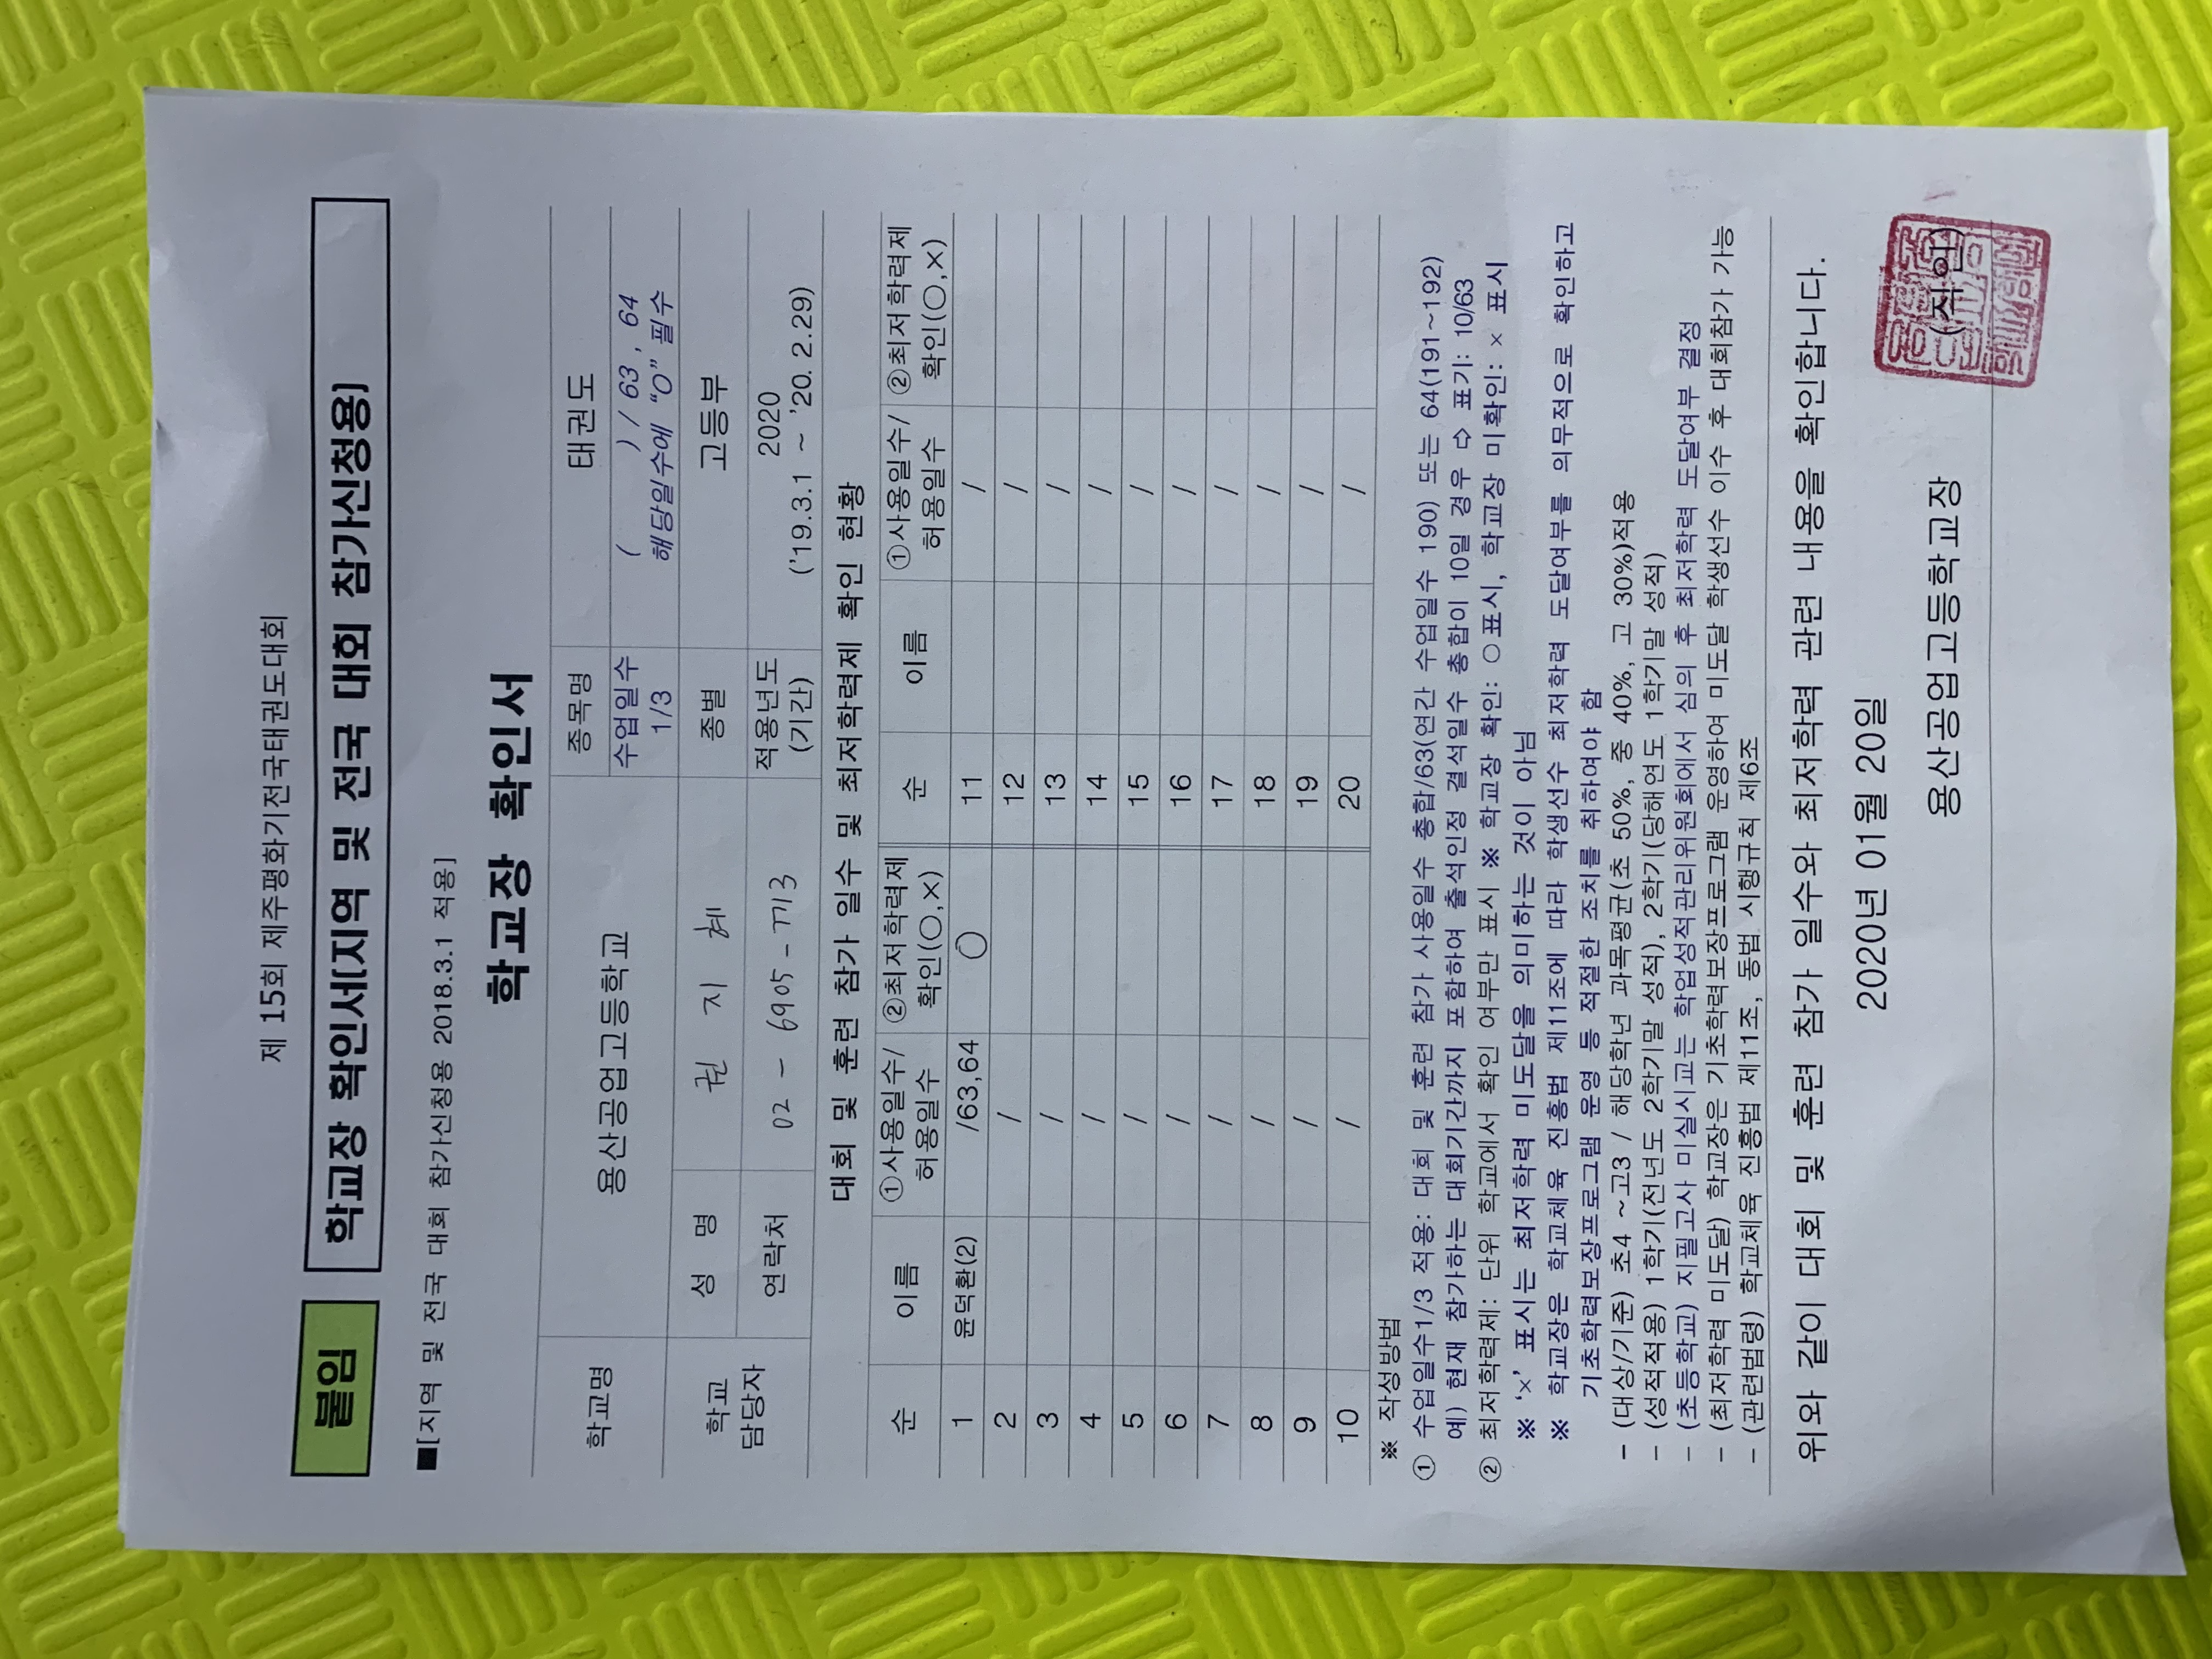 제 15회 제주평화기전국태권도대회
붙임 학교장 확인서(지역 및 전국 대회 참가신청용)
■[지역 및 전국 대회 참가신청용 2018.3.1 적용]
학교장 확인서
학교명 용산공업고등학교 종목명 태권도
수업일수 1/3 ( ) / 63 , 64
해당일수에 "O" 필수
학교 담당자 성 명 권 지 혜 종별 고등부
연락처 02 - 6905 - 7713 적용년도 (기간) 2020
('19.3.1 ~ '20. 2.29)
대회 및 훈련 참가 일수 및 최저학력제 확인 현황
순 이름 ①사용일수/허용일수 ②최저학력제 확인(○,×) 순 이름 ①사용일수/허용일수 ②최저학력제 확인(○,×)
1 윤덕환(2) /63,64 ○ 11 /
2 / 12 /
3 / 13 /
4 / 14 /
5 / 15 /
6 / 16 /
7 / 17 /
8 / 18 /
9 / 19 /
10 / 20 /
※ 작성방법
① 수업일수1/3 적용: 대회 및 훈련 참가 사용일수 총합/63(연간 수업일수 190) 또는 64(191~192)
예) 현재 참가하는 대회기간까지 포함하여 출석인정 결석일수 총합이 10일 경우 ⇨ 표기: 10/63
② 최저학력제: 단위 학교에서 확인 여부만 표시 ※ 학교장 확인: ○표시, 학교장 미확인: × 표시
※ '×' 표시는 최저학력 미도달을 의미하는 것이 아님
※ 학교장은 학교체육 진흥법 제11조에 따라 학생선수 최저학력 도달여부를 의무적으로 확인하고
기초학력보장프로그램 운영 등 적절한 조치를 취하여야 함
- (대상/기준) 초4 ~고3 / 해당학년 과목평균(초 50%, 중 40%, 고 30%)적용
- (성적적용) 1학기(전년도 2학기말 성적), 2학기(당해연도 1학기말 성적)
- (초등학교) 지필고사 미실시교는 학업성적관리위원회에서 심의 후 최저학력 도달여부 결정
- (최저학력 미도달) 학교장은 기초학력보장프로그램 운영하여 미도달 학생선수 이수 후 대회참가 가능
- (관련법령) 학교체육 진흥법 제11조, 동법 시행규칙 제6조
위와 같이 대회 및 훈련 참가 일수와 최저학력 관련 내용을 확인합니다.
2020년 01월 20일
용산공업고등학교장 (직인)